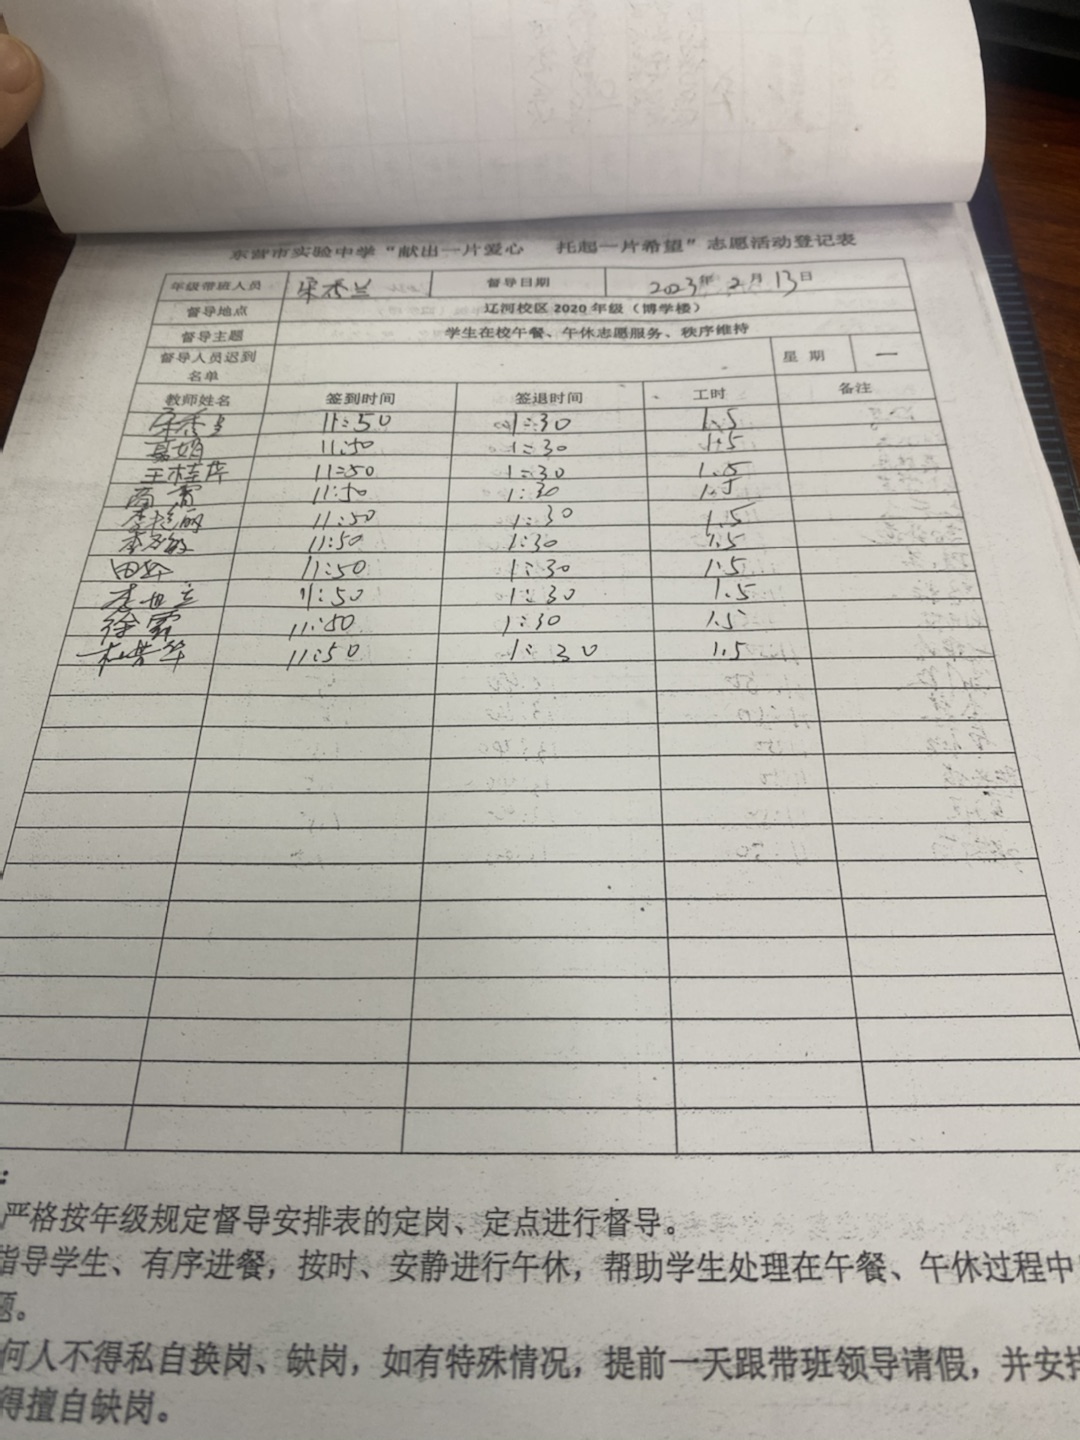 东营市实验中学“献出一片爱心 托起一片希望”志愿活动登记表
年级带班人员 督导日期 2023年2月13日
督导地点 辽河校区2020年级（博学楼）
督导主题 学生在校午餐、午休志愿服务、秩序维持
督导人员迟到名单 星期 一
教师姓名 签到时间 签退时间 工时 备注
11:50 1:30 1.5
11:50 1:30 1.5
王桂萍 11:50 1:30 1.5
11:50 1:30 1.5
李艳丽 11:50 1:30 1.5
11:50 1:30 1.5
11:50 1:30 1.5
11:50 1:30 1.5
徐霞 11:50 1:30 1.5
杜芳华 11:50 1:30 1.5
严格按年级规定督导安排表的定岗、定点进行督导。
指导学生、有序进餐，按时、安静进行午休，帮助学生处理在午餐、午休过程中
题。
何人不得私自换岗、缺岗，如有特殊情况，提前一天跟带班领导请假，并安排
得擅自缺岗。